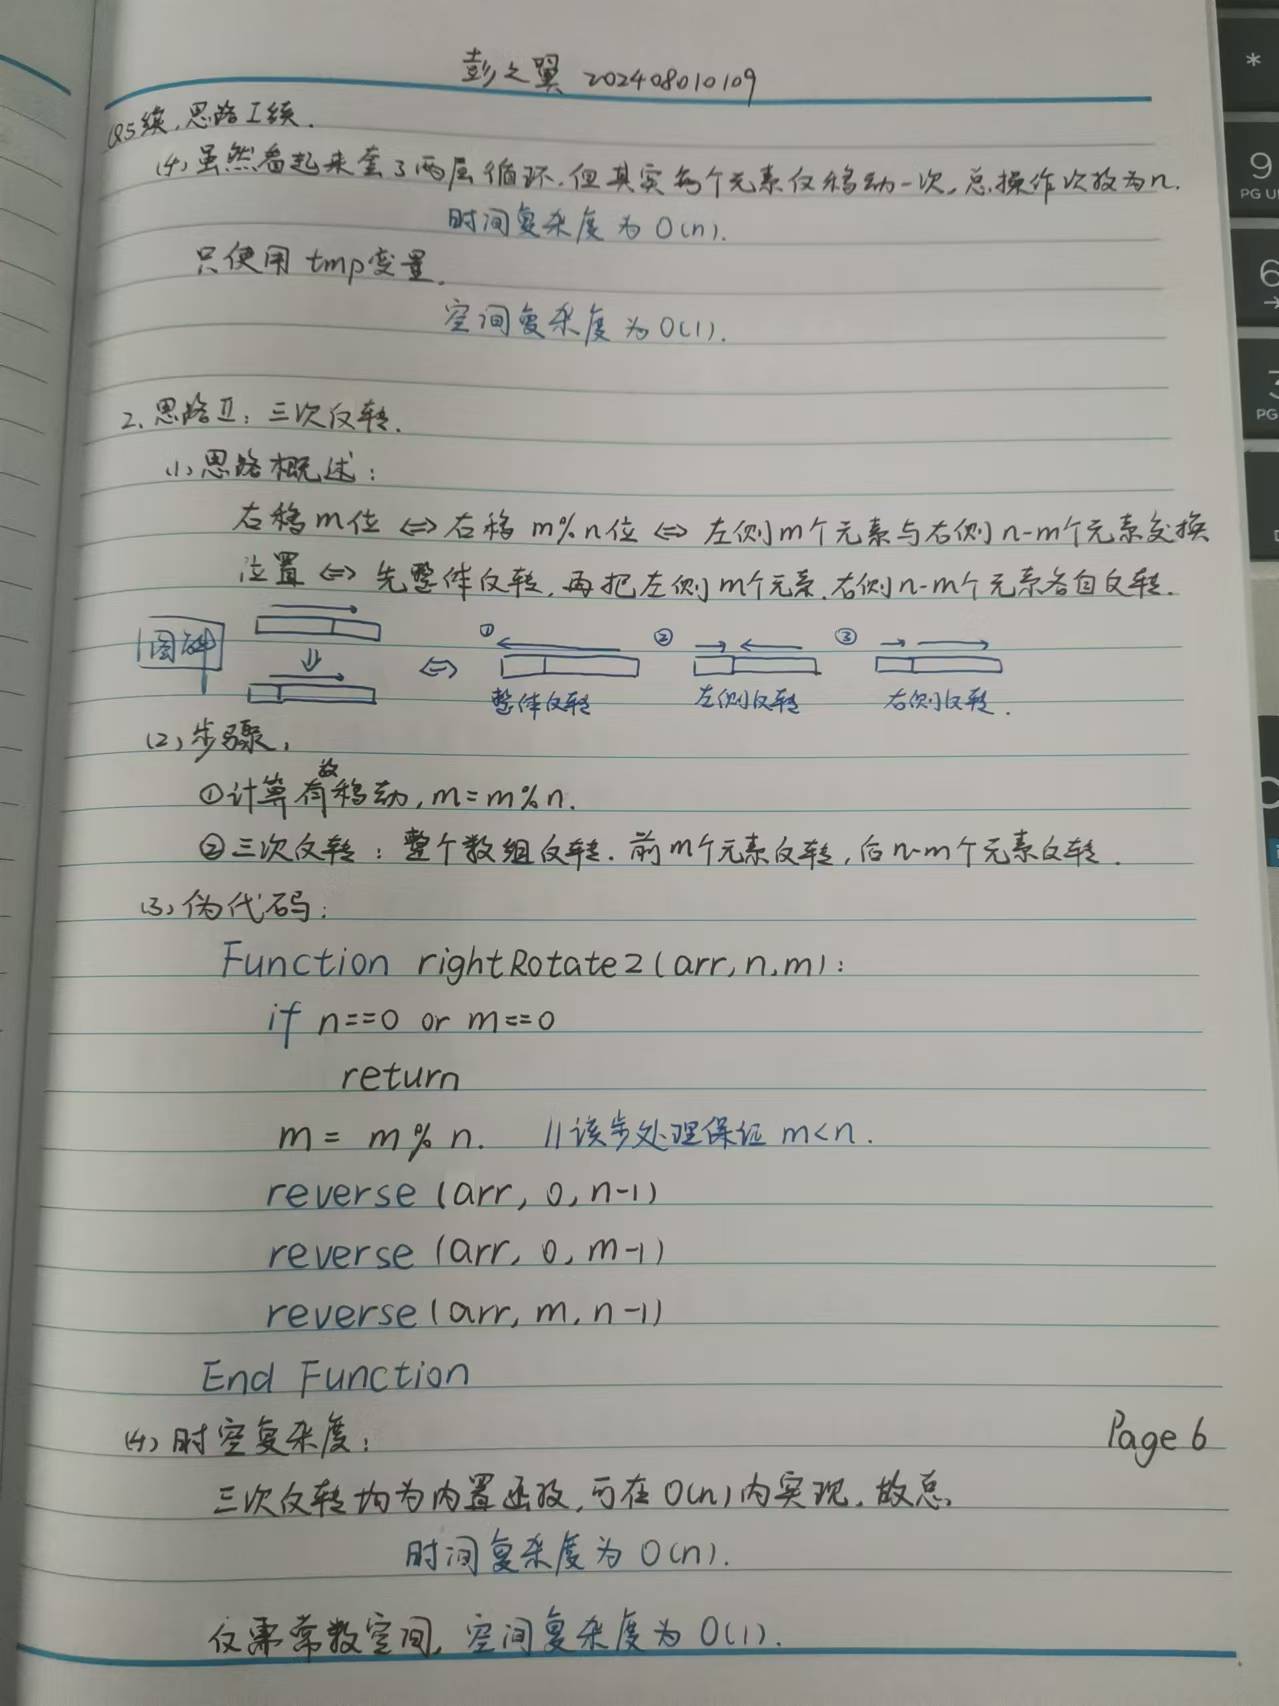 彭之翼 202408010109
Q5续,思路I续.
(4) 虽然看起来套了两层循环,但其实每个元素仅移动一次,总操作次数为n.
时间复杂度为 O(n).
只使用 tmp变量.
空间复杂度为 O(1).
2. 思路Ⅱ: 三次反转.
(1) 思路概述:
右移m位 <=> 右移 m%n位 <=> 左侧m个元素与右侧n-m个元素交换
位置 <=> 先整体反转,再把左侧m个元素、右侧n-m个元素各自反转.
图解
① ② ③
整体反转 左侧反转 右侧反转.
(2) 步骤:
①计算有效移动, m=m%n.
②三次反转: 整个数组反转. 前m个元素反转, 后n-m个元素反转.
(3) 伪代码:
Function rightRotate2(arr,n,m):
if n==0 or m==0
return
m = m % n. //该步处理保证 m<n.
reverse (arr, 0, n-1)
reverse (arr, 0, m-1)
reverse (arr, m, n-1)
End Function
(4) 时空复杂度:
Page 6
三次反转均为内置函数, 可在 O(n)内实现, 故总
时间复杂度为 O(n).
仅需常数空间, 空间复杂度为 O(1).
*
9
PG U
6
→
3
PG